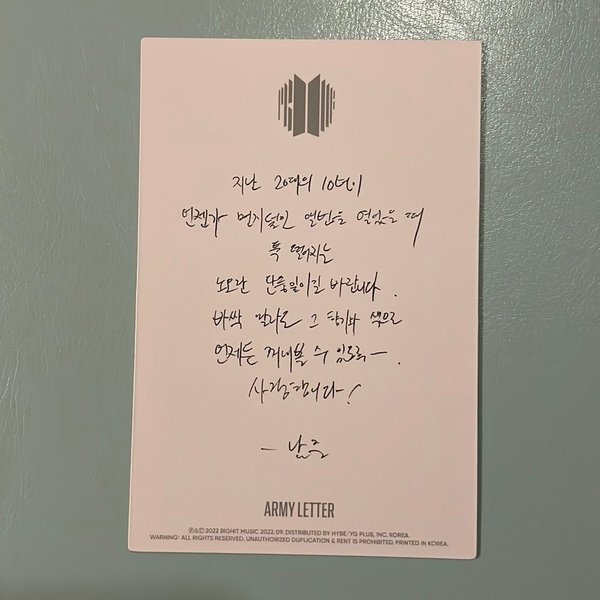 PROOF
지난 20대의 10년이
언젠가 먼지덮인 앨범을 열었을 때
툭 떨어지는
노오란 단풍잎이길 바랍니다.
바싹 말라도 그 향기와 색으로
언제든 꺼내볼 수 있도록—.
사랑합니다—!
— 남준
ARMY LETTER
℗&©2022 BIGHIT MUSIC 2022.09. DISTRIBUTED BY HYBE/YG PLUS, INC. KOREA.
WARNING: ALL RIGHTS RESERVED. UNAUTHORIZED DUPLICATION & RENT IS PROHIBITED, PRINTED IN KOREA.